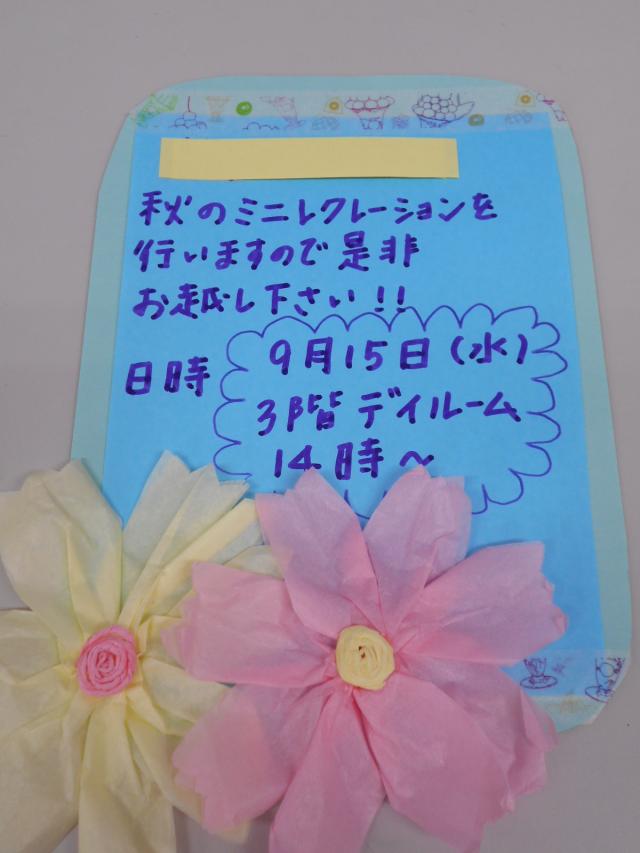 秋のミニレクレーションを
行いますので是非
お越し下さい!!
日時
9月15日(水)
3階 デイルーム
14時~